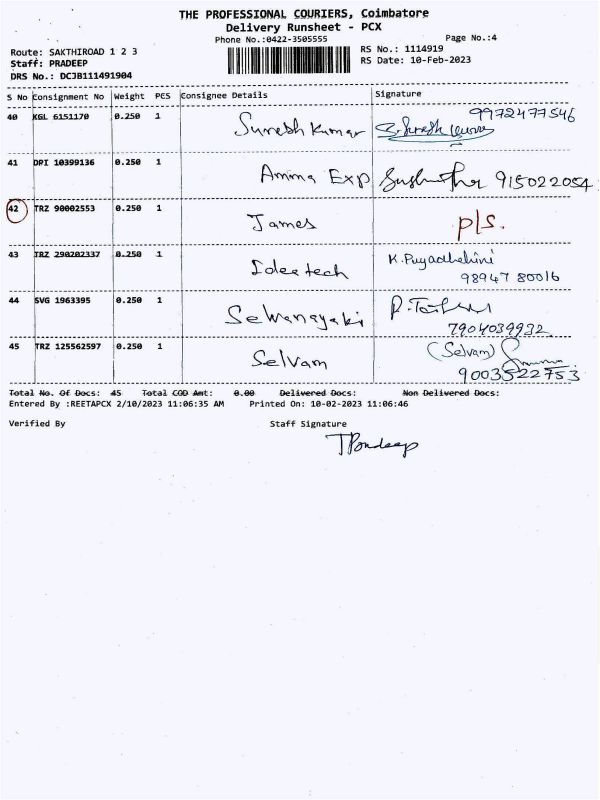 THE PROFESSIONAL COURIERS, Coimbatore
Delivery Runsheet - PCX
Phone No.:0422-3505555
Page No.:4
Route: SAKTHIROAD 1 2 3
RS No.: 1114919
Staff: PRADEEP
RS Date: 10-Feb-2023
DRS No.: DCJB111491904
S No Consignment No Weight PCS Consignee Details Signature
40 KGL 6151170 0.250 1 Suresh Kumar 9972477546
41 DPI 10399136 0.250 1 Amma Exp 915022054
42 TRZ 90002553 0.250 1 James P/S.
43 TRZ 290202337 0.250 1 Ideatech K. Puyadhelini
98947 80016
44 SVG 1963395 0.250 1 Selvanayaki
7904039932
45 TRZ 125562597 0.250 1 Selvam (Selvam)
9003522753
Total No. Of Docs: 45 Total COD Amt: 0.00 Delivered Docs: Non Delivered Docs:
Entered By :REETAPCX 2/10/2023 11:06:35 AM Printed On: 10-02-2023 11:06:46
Verified By Staff Signature